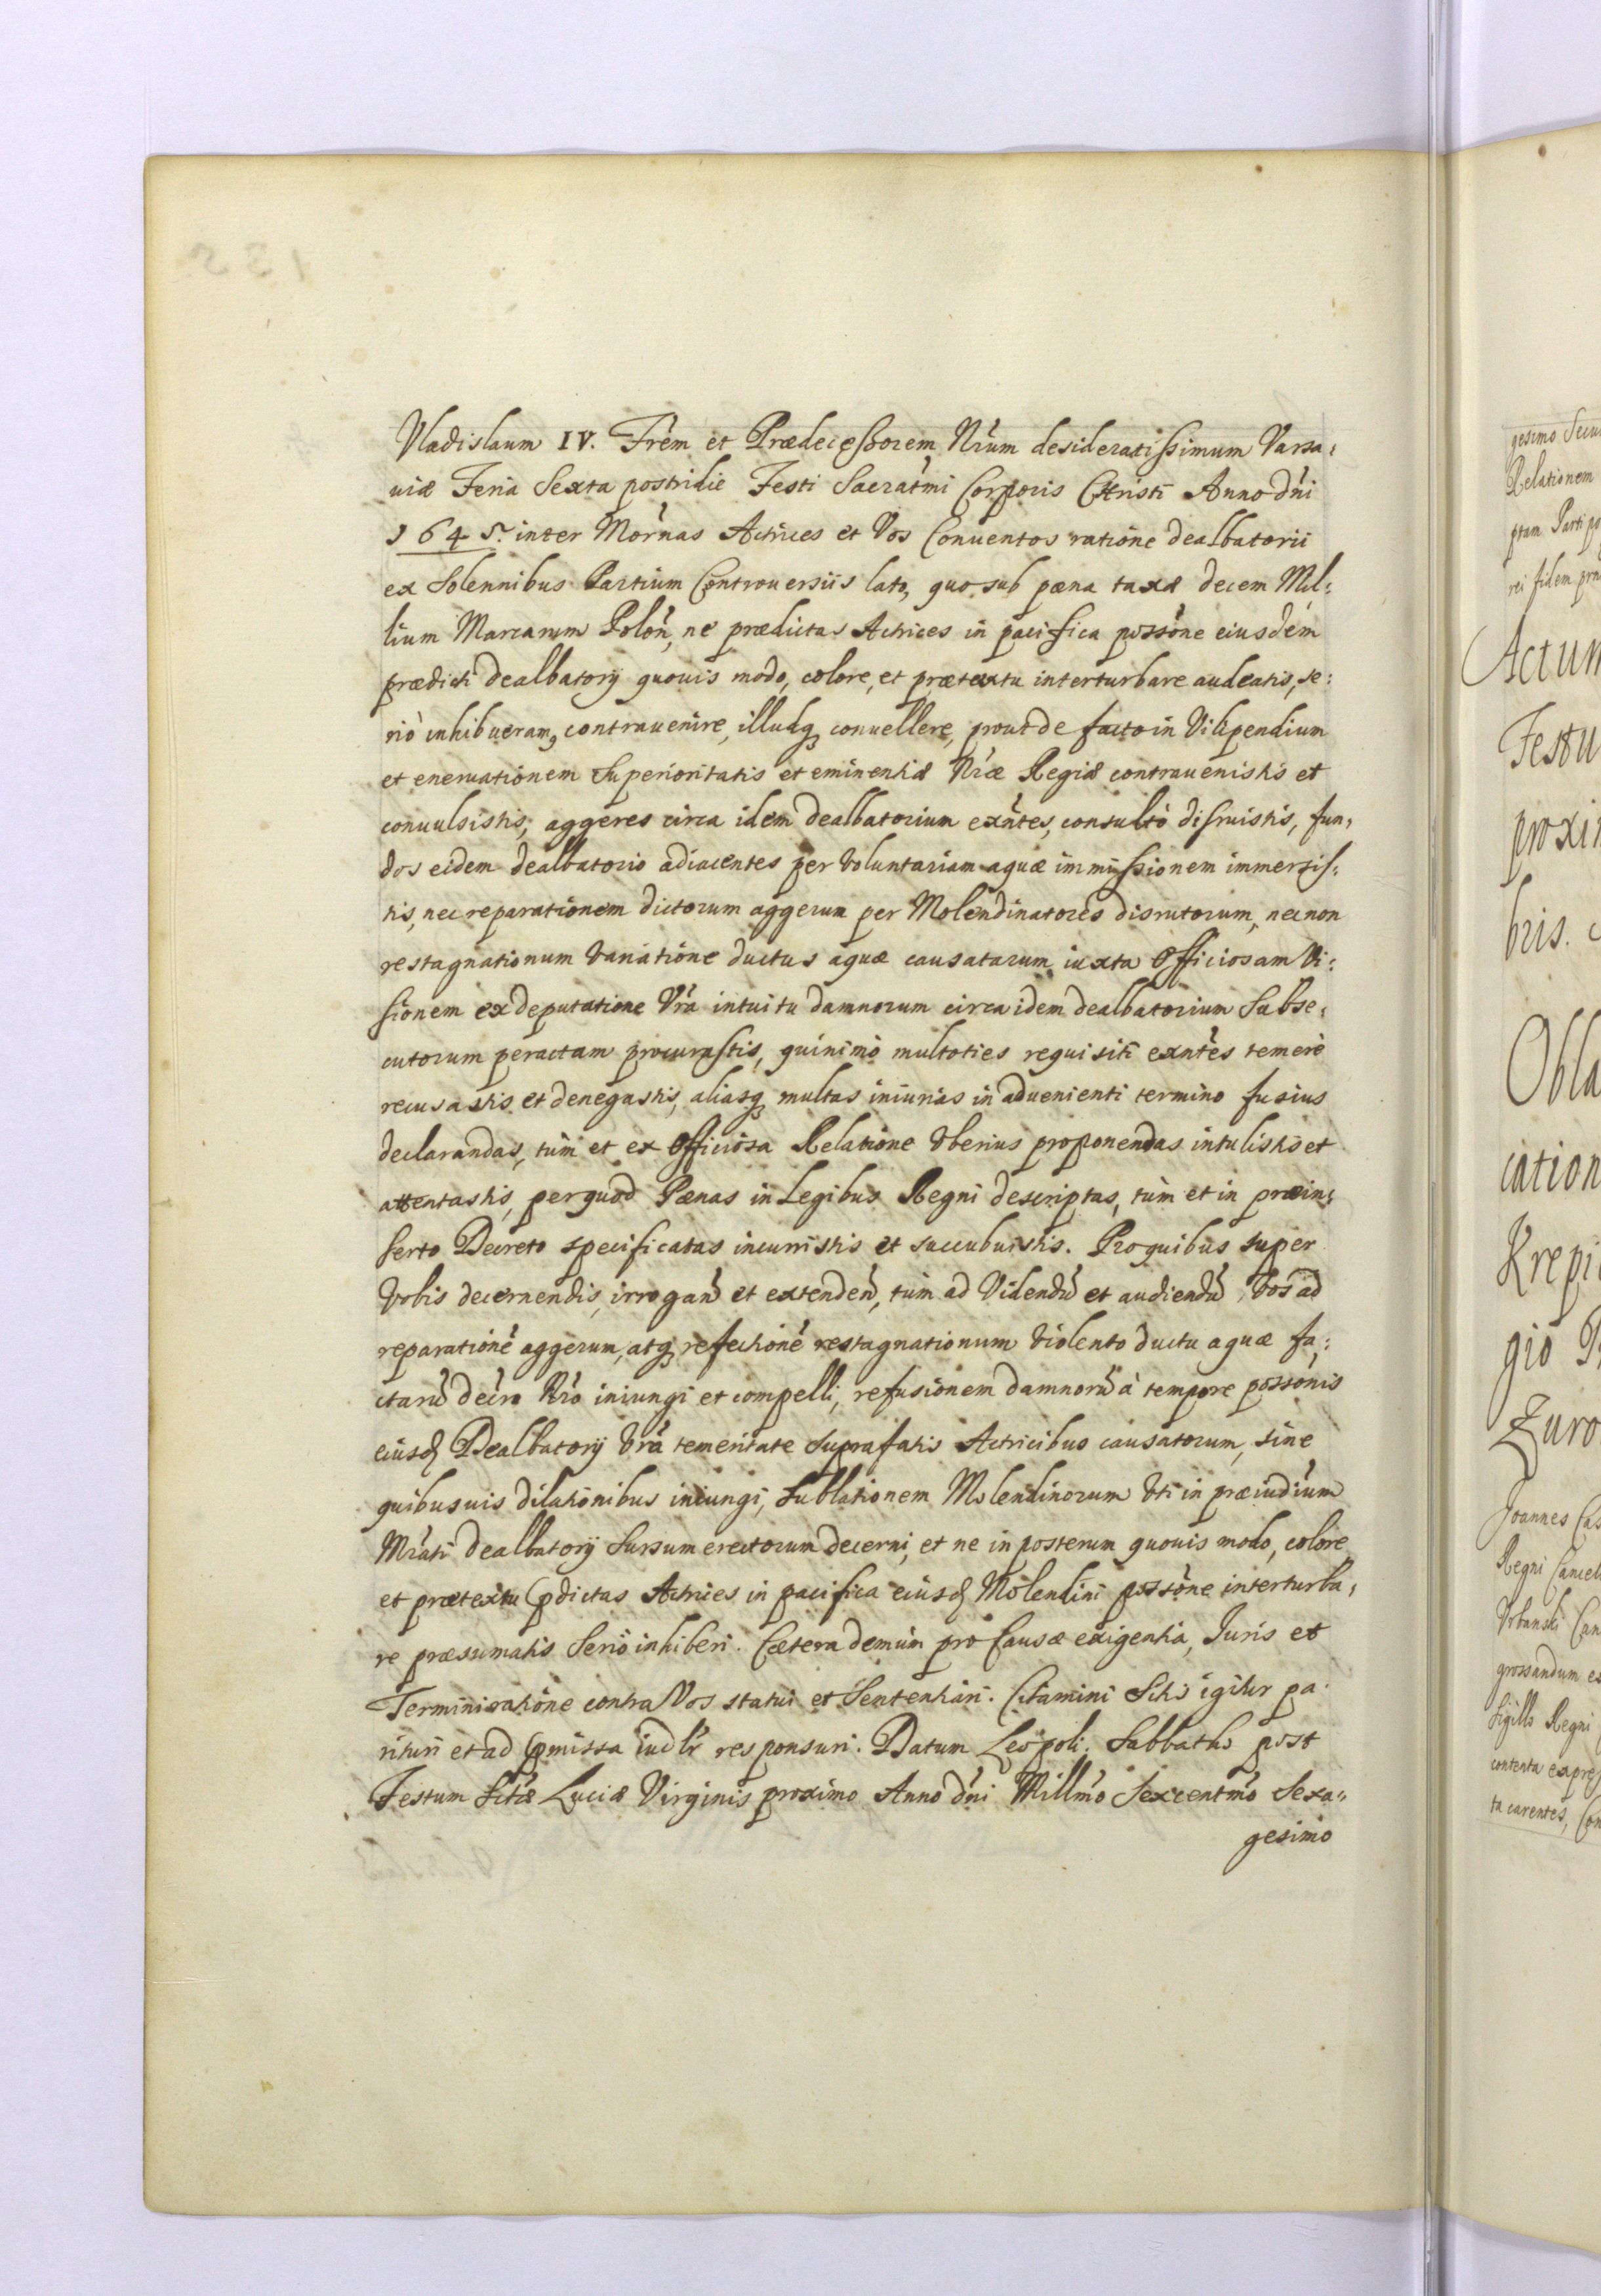 Vladislaum IV. Frém et Prædeceßorem Nrúm desideratißimum Varsa:
uiæ Feria Sexta postridie Festi Sacratmi Corporis Christi Anno dńi
1645. inter Mornas Actrices et Vos Conuentos ratione dealbatorii
ex Solennibus Partium Controuersiis lato, quo sub pæna taxæ decem Mil:
lium Marcarum Polon, ne prædictas Actrices in pacifica possone eiusdem
prædicti dealbatorÿ quouis modo, colore, et prætextu interturbare audeatis, se:
riò inhibueram9 contrauenire, illudq3 conuellere, prout de facto in Vilipendium
et eneruationem Superioritatis et eminentiæ Nræ Regiæ contrauenistis et
conuulsistis, aggeres circa idem dealbatorium exntes, consultò disruistis, fun:
dos eidem dealbatorio adiacentes per Voluntariam aquæ immißionem immersis:
tis, nec reparationem dictorum aggerum per Molendinatores disrutorum, necnon
restagnationum Variatione ductus aquæ causatarum iuxta Officiosam Vi:
sionem ex deputatione Vra intuitu damnorum circa idem dealbatorium Subse:
cutorum peractam procurastis, quinimò multoties requisiti exntes temerè
recusastis et denegastis, aliasq3 multas iniurias in aduenienti termino fusius
declarandas, tum et ex Officiosa Relatione Vberius proponendas intulistis et
attentastis, per quod Pænas in Legibus Regni descriptas, tum et in præin:
serto Decreto specificatas incurristis et succubuistis. Pro quibus super
Vobis decernendis, irrogan et extenden, tum ad Videndu et audiendu, Vos ad
reparatione aggerum, atq3 refectione restagnationum Violento ductu aquæ fa:
ctaru decro Nro iniungi et compelli, refusionem damnoru à tempore possonis
eiusd Dealbatorÿ Vra temeritate Suprafatis Actricibus causatorum, sine
quibusuis dilationibus iniungi, Sublationem Molendinorum Vti in præiudium
Mrati dealbatorÿ Sursum erectorum decerni, et ne in posterum quouis modo, colore
et prætextu pdictas Actrices in pacifica eiusd Molendini possone interturba:
re præsumatis Seriò inhiberi. Cætera demum pro Causæ exigentia, Juris et
Termini ratione contra Vos statui et Sententiari. Citamini Sitis igitur pa:
rituri et ad pmissa iudlr responsuri. Datum Leopoli. Sabbatho post
Festum Sctæ Luciæ Virginis proximo Anno dńi Millmo Sexcentmo Sexa:
gesimo
gesimo Secu
Relationem
ptam Parti po
rei fidem pr
Actum
Festu
proxi
bris.
Obla
cation
Krepi
gio
Zuro
Joannes Cas
Regni Cancel
Vrbanski Can
grossandum e
sigillo Regni
contenta expres
ta carentes, Con
135